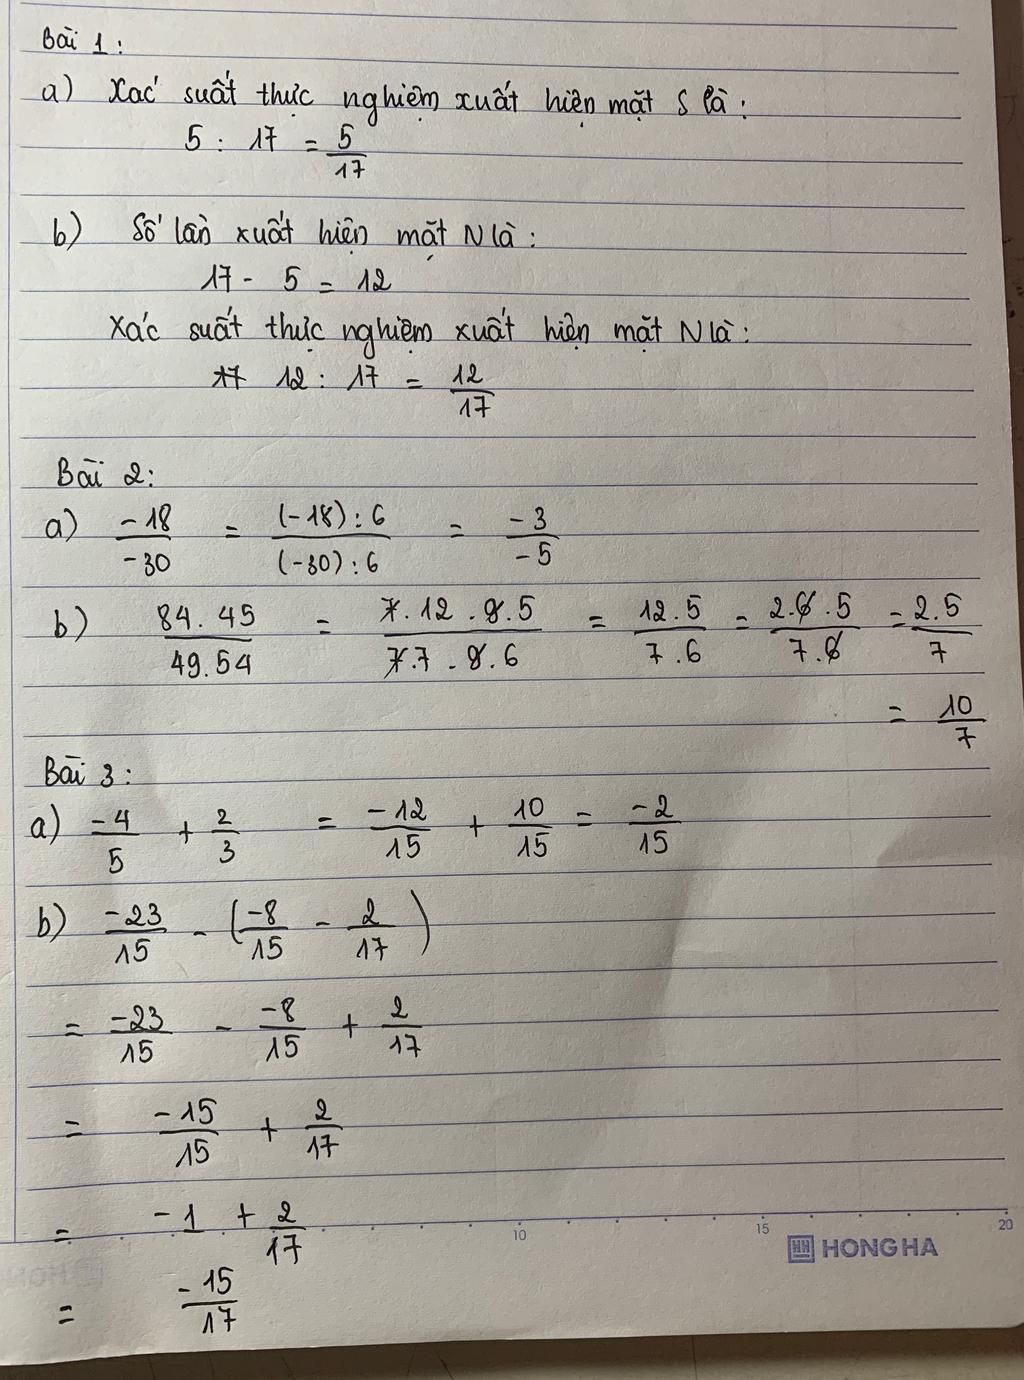 Bài 1:
a) Xác suất thực nghiệm xuất hiện mặt S là:
5 : 17 = 5/17
b) Số lần xuất hiện mặt N là:
17 - 5 = 12
Xác suất thực nghiệm xuất hiện mặt N là:
12 : 17 = 12/17
Bài 2:
a) -18/-30 = (-18):6/(-30):6 = -3/-5
b) 84.45/49.54 = 7.12.9.5/7.7.9.6 = 12.5/7.6 = 2.6.5/7.6 = 2.5/7
= 10/7
Bài 3:
a) -4/5 + 2/3 = -12/15 + 10/15 = -2/15
b) -23/15 - (-8/15 - 2/17)
= -23/15 - -8/15 + 2/17
= -15/15 + 2/17
= -1 + 2/17
10 15 20
HONG HA
= -15/17